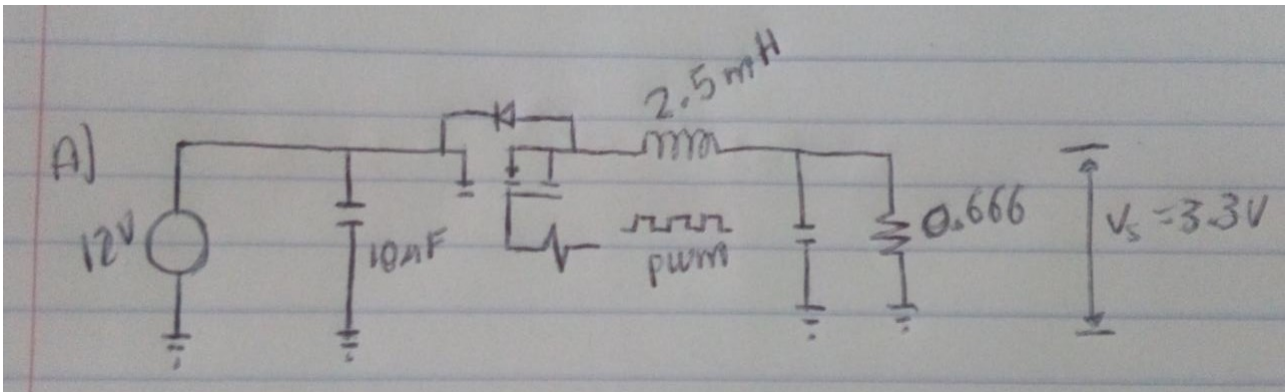 A)
12V
10µF
2.5mH
pwm
0.666
Vs = 3.3V